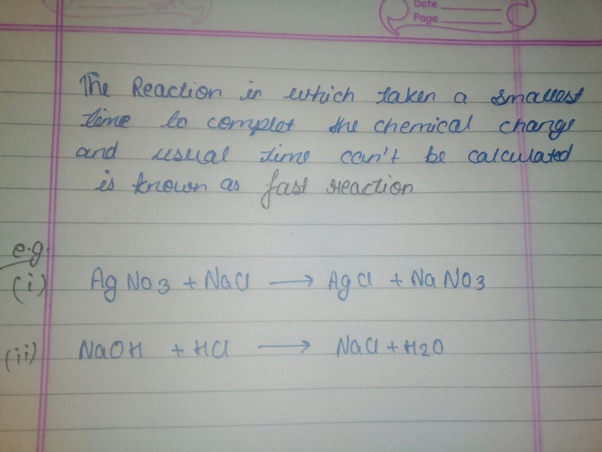 Date
Page
The Reaction in which taken a smallest
time to complet the chemical change
and usual time can't be calculated
is known as fast reaction
e.g.
(i) AgNO3 + NaCl → AgCl + NaNO3
(ii) NaOH + HCl → NaCl + H2O